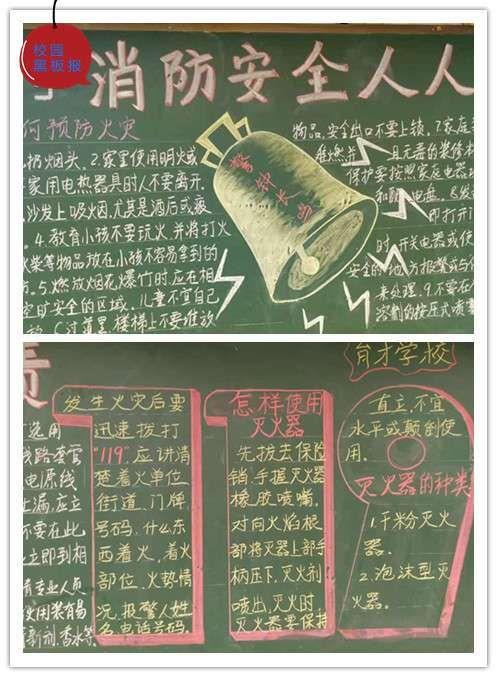 校园
黑板报
消防安全人人
何预防火灾
扔烟头。2.家里使用明火或
家用电热器具时人不要离开.
沙发上吸烟.尤其是酒后或疲
4.教育小孩不要玩火 并将打火
柴等物品放在小孩不容易拿到的
5.燃放烟花爆竹时.应在相
安全的区域.儿童不宜自己
楼梯上不要堆放
警钟长鸣
物品.安全出口不要上锁。7.家庭
难燃并
且无毒的装修材
保护要按照家庭电器
即打开
时.开关电器或使
安全的地方报警或与
来处理。9.不要在
溶剂的按压式喷雾
责
育才学校
选用
线路套管
电源线
上漏.应立
不要在此
立即到相
有专业人员
使用装有易
新剂.香水等
发生火灾后要
迅速拨打
"119".应讲清
楚着火单位
街道、门牌、
号码.什么东
西着火.着火
部位.火势情
况.报警人姓
名.电话号码.
怎样使用
灭火器
先拔去保险
销.手握灭火器
橡胶喷嘴.
对向火焰根
部将灭器上部手
柄压下.灭火剂
喷出.灭火时
灭火器要保持
直立.不宜
水平或颠倒使
用.
灭火器的种类
1.干粉灭火
器.
2.泡沫型灭
火器.